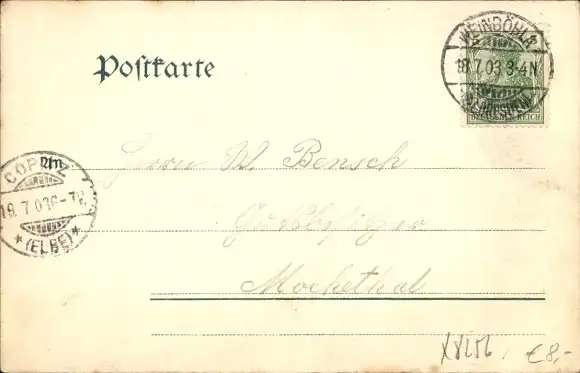 Postkarte
WEINBÖHLA
18 7 03 3-4N
DEUTSCHES REICH
An
COPITZ
18. 7 03 6-7N
* (ELBE) *
Herrn W. Bensch
Gutsbesitzer
Mockethal
€8,-